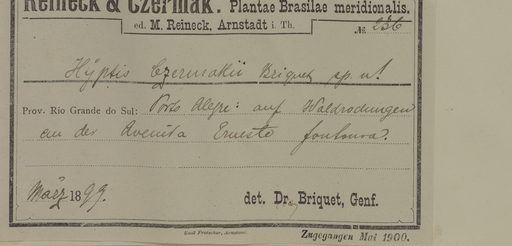 Reineck & Czermak. Plantae Brasilae meridionalis.
ed. M. Reineck, Arnstadt i. Th.
№ 236
Hyptis Czermakii Briquet sp. n!
Prov. Rio Grande do Sul: Porto Alegre: auf Waldrodungen
an der Avenida Ernesto fontoura.
März 1899.
det. Dr. Briquet, Genf.
Emil Frotscher, Arnstadt.
Zugegangen Mai 1900.